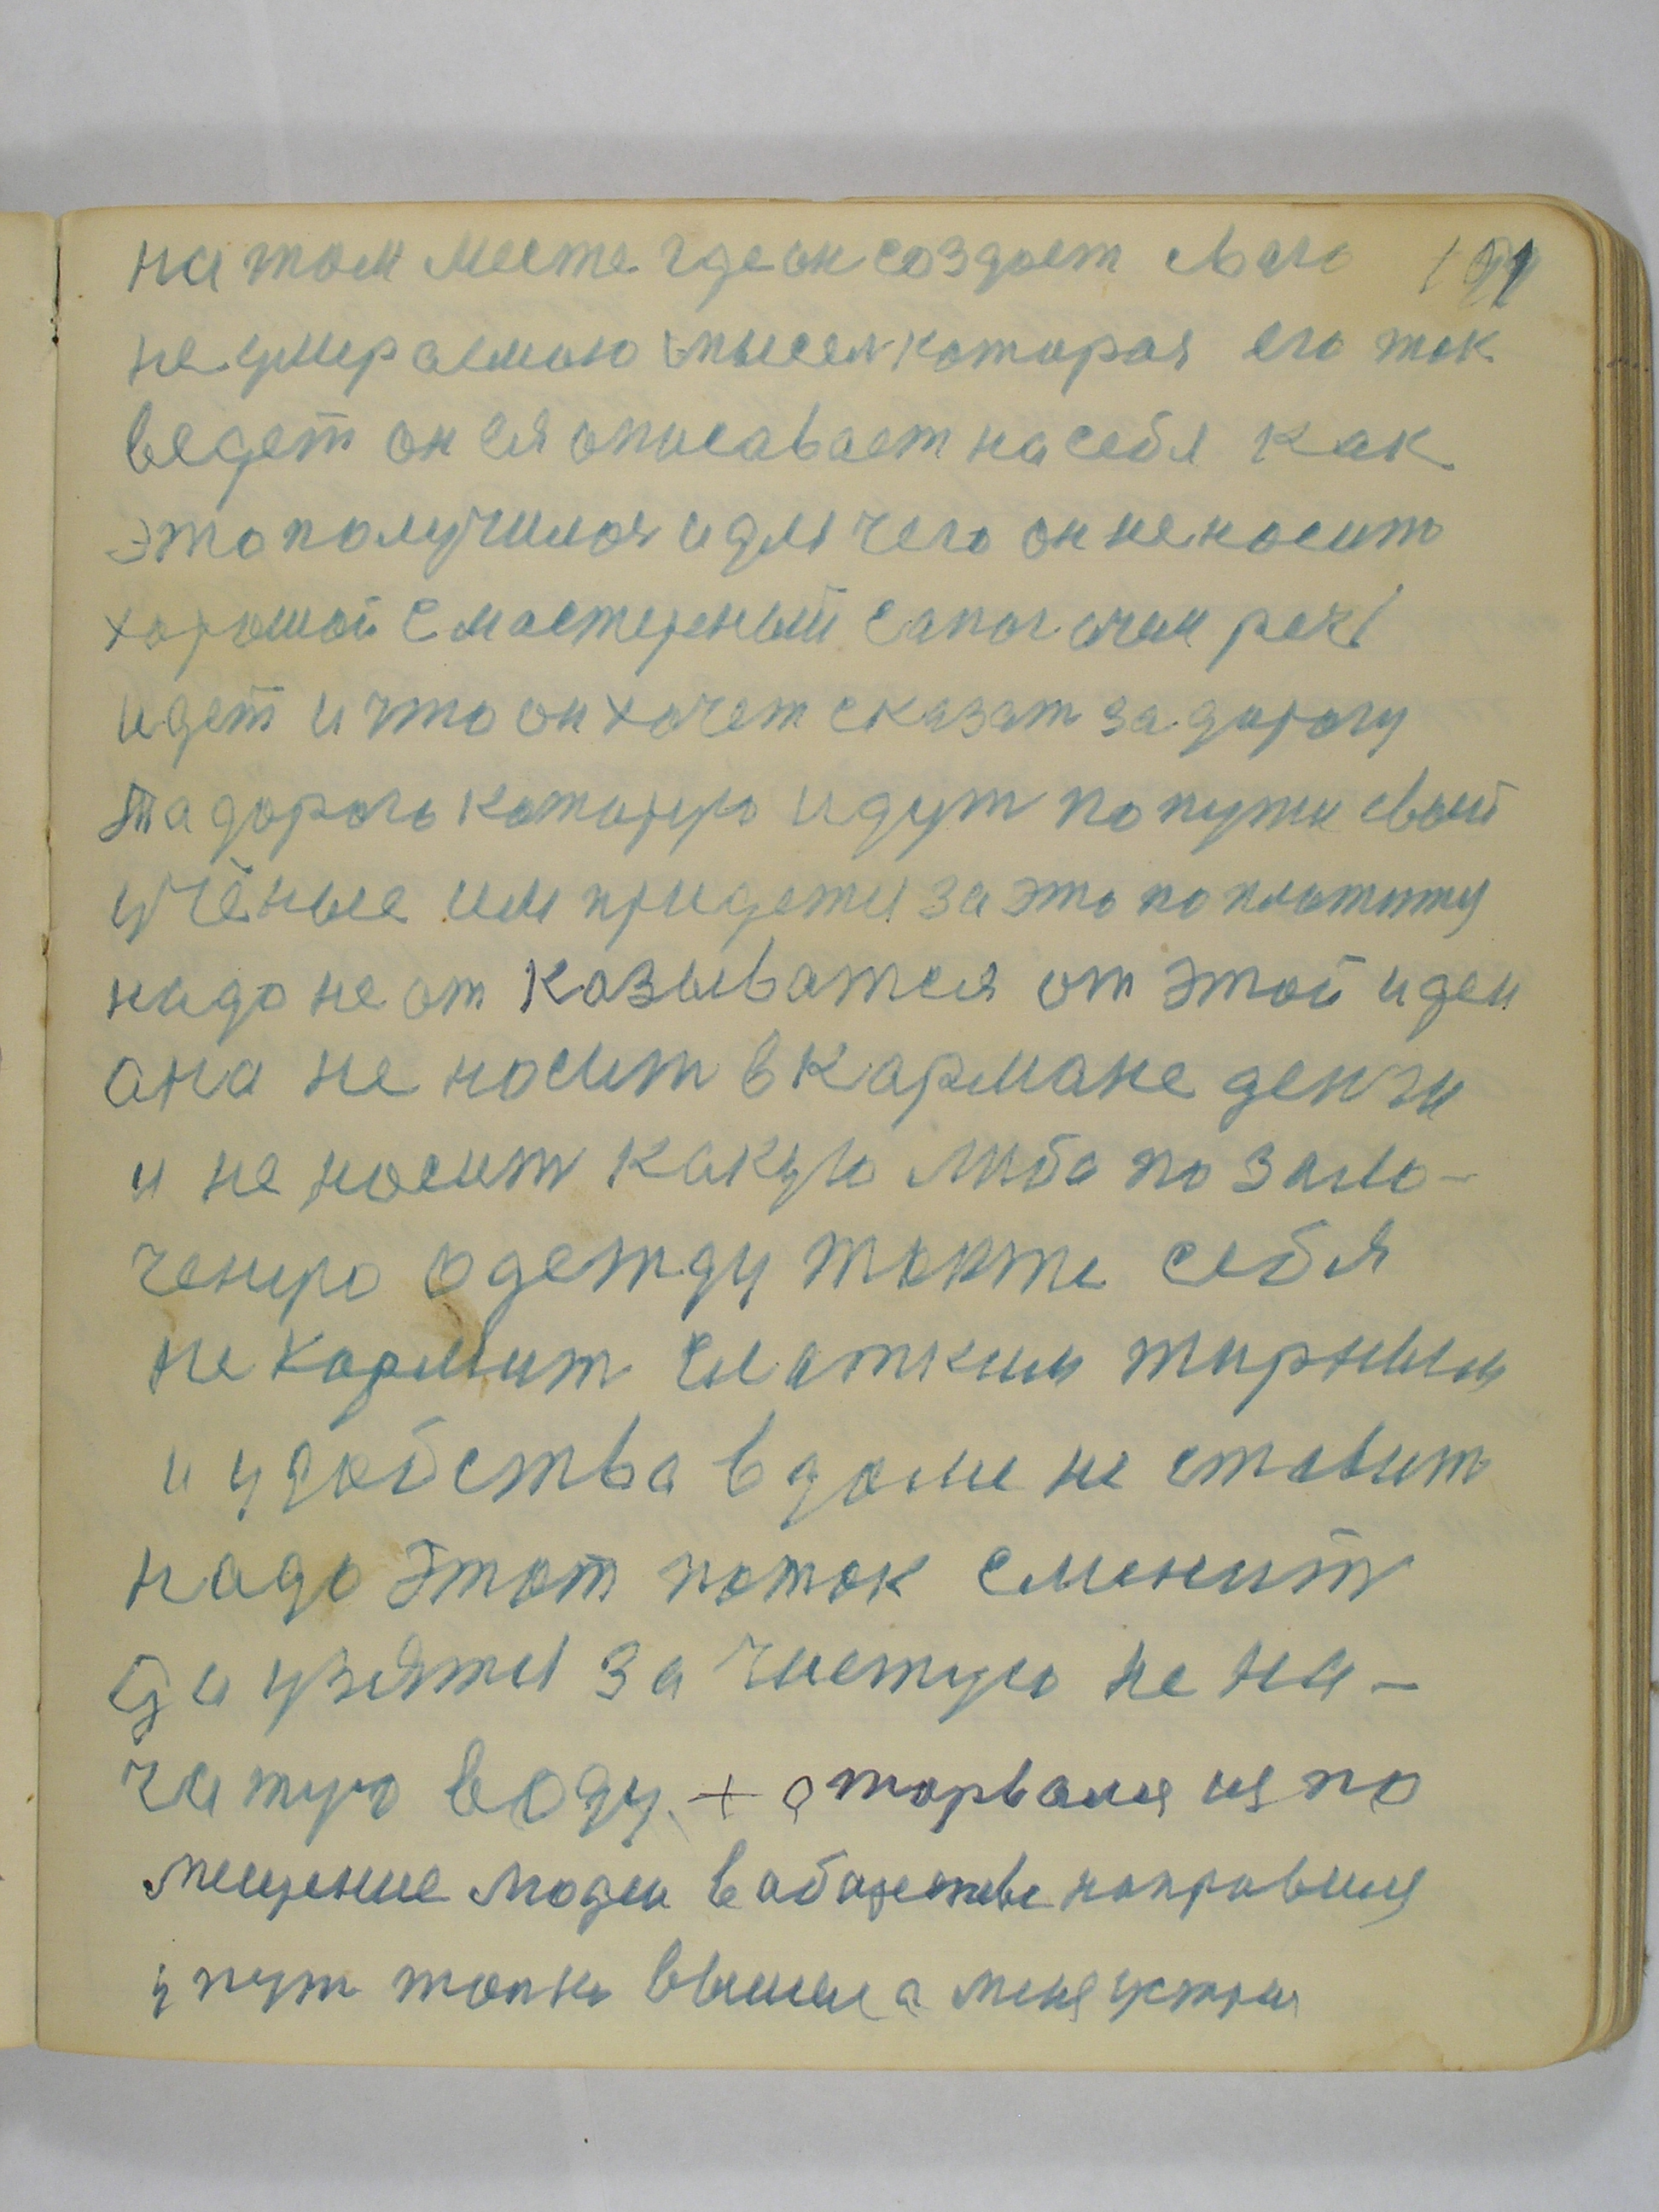 на том месте где он создает сваго 191
не умираемою мысел которая его так
ведет он ея описавает на себя как
это получился и для чего он не носит
хорошой смастерный сапог речь
идет и что он хочет сказат за дорогу
та дорога которую идут по пути свый
учёные им придетця за это
надо не от казыватся от этой идеи
она не носит в кармане денги
и не носит какую либа по зало-
ченую одежду такжи себя
не кормит слатким жирным
и удобства в доми не ставит
надо этот поток сменит
да узяться за чистую не на-
чатую воду + оторвался из по
мещение люди в
у пут толка вышел а меня